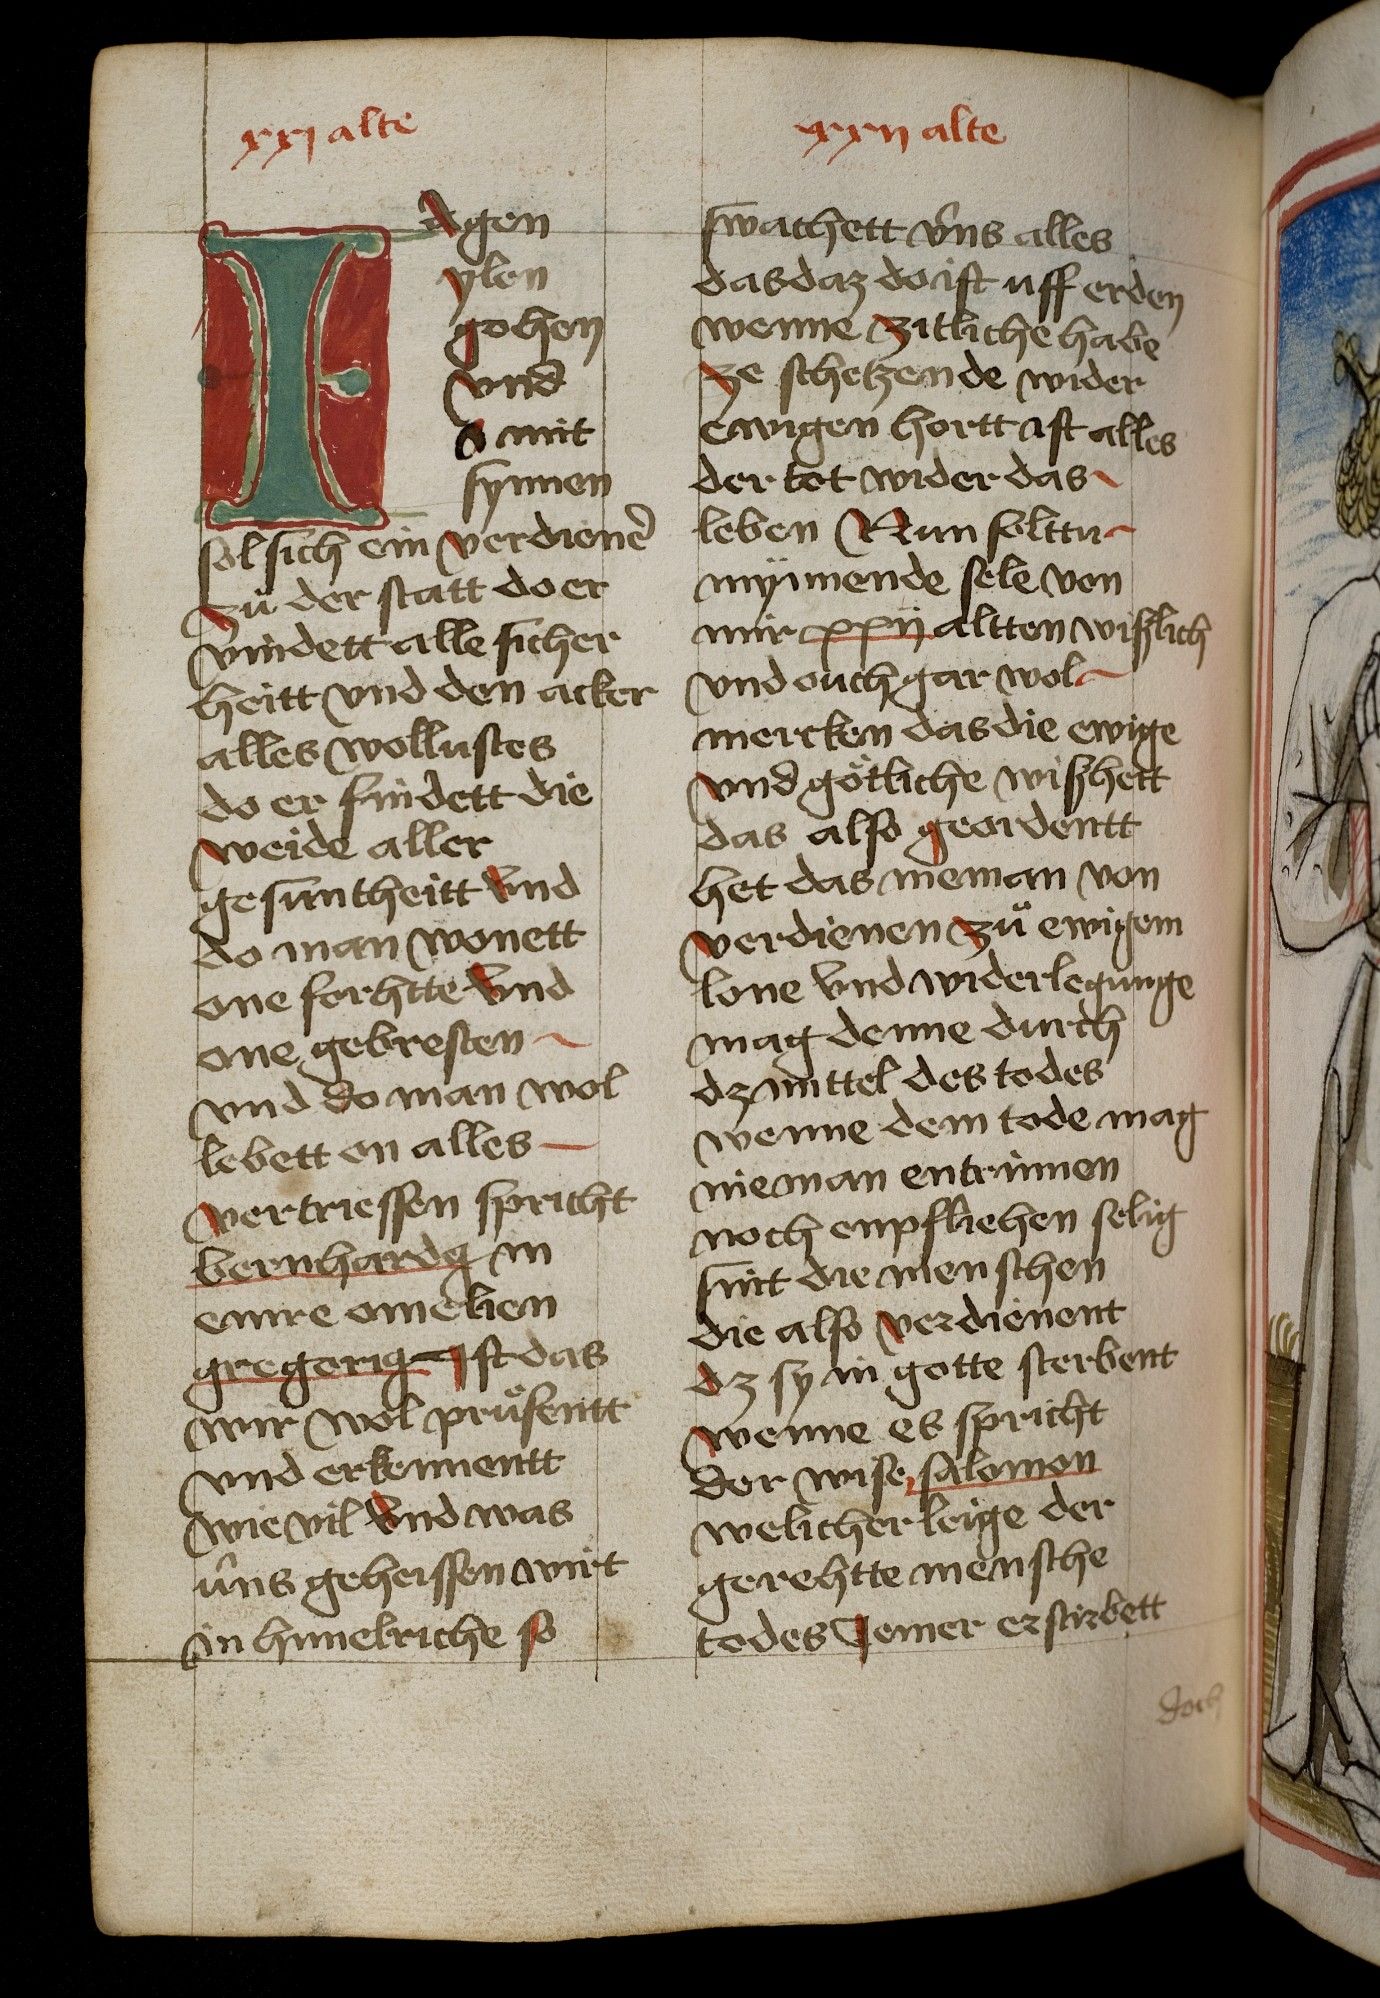 xxj alte
IAgen
ylen
gohen
vnd
mit
synnen
sol sich ein verdiener
zů der statt do er
vindett alle sicher
heitt vnd den acker
alles wollustes
do er findett die
weide aller
gesuntheitt vnd
do man wonett
one forhtte vnd
one gebresten
vnd do man wol
lebett on alles
vertriessen spricht
bernhardꝯ in
einre omelien
gregoriꝯ Ist das
wir wol průfentt
vnd erkennentt
wie vil vnd was
ůns geheissen wirt
in himelriche so
xxij alte
swachett vns alles
das daz do ist uff erden
wenne zitliche habe
ze schetzende wider
ewigen hortt ist alles
der tot wider das
leben Nun solttu
mynnende sele von
mir xxij altten wißlich
vnd ouch gar wol
mercken das die ewige
vnd götliche wißhett
das also geordentt
het das nieman von
verdienen zů ewigem
lone vnd widerlegunge
mag denne durch
dz mittel des todes
wenne dem tode mag
nieman entrinnen
noch enpfliehen selig
sint die menschen
die also verdienent
dz sy in gotte sterbent
wenne es spricht
der wise salomon
welicherleige der
gerehtte mensche
todes Iemer erstirbett
doch